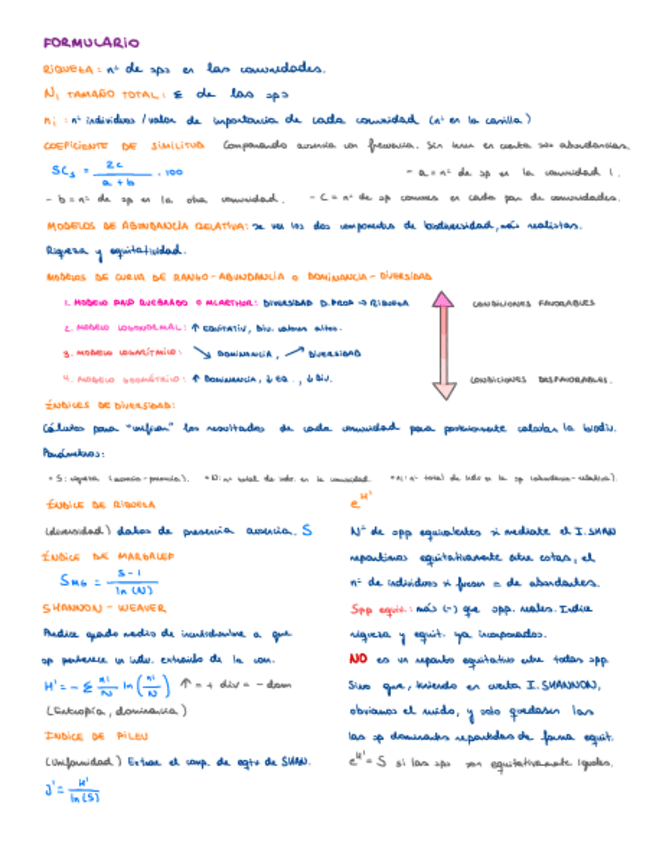 FORMULARIO
RIQUEZA: nº de sps en las comunidades.
N, TAMAÑO TOTAL: Σ de las sps
ni: nº individuos / valor de importancia de cada comunidad (nº en la casilla)
COEFICIENTE DE SIMILITUD Comparando ausencia con frecuencia. Sin tener en cuenta sus abundancias.
SCs = 2c / a + b · 100
- a = nº de sp en la comunidad 1.
- b = nº de sp en la otra comunidad. - C = nº de sp comunes en cada par de comunidades.
MODELOS DE ABUNDANCIA RELATIVA: se ven los dos componentes de biodiversidad, más realistas.
Riqueza y equitatividad.
MODELOS DE CURVA DE RANGO-ABUNDANCIA o DOMINANCIA-DIVERSIDAD
1. MODELO PALO QUEBRADO O MCARTHOR: DIVERSIDAD D. PROP → RIQUEZA
CONDICIONES FAVORABLES
2. MODELO LOGNORMAL: ↑ EQUITATIV, Div. valores altos.
3. MODELO LOGARÍTMICO: ↘ DOMINANCIA, ↗ DIVERSIDAD
4. MODELO GEOMÉTRICO: ↑ DOMINANCIA, ↓ EQ., ↓ DIV.
CONDICIONES DESFAVORABLES.
ÍNDICES DE DIVERSIDAD:
Cálculos para "unificar" los resultados de cada comunidad para posteriormente calcular la biodiv.
Parámetros:
• S: riqueza (ausencia-presencia). • N: nº total de indv. en la comunidad. • ni: nº total de indv en la sp (abundancia-relativa).
ÍNDICE DE RIQUEZA
(diversidad) datos de presencia ausencia. S
ÍNDICE DE MARGALEF
SMG = S-1 / ln(N)
SHANNON-WEAVER
Predice grado medio de incertidumbre a que
sp pertenece un indv. extraído de la com.
H' = - Σ ni/N ln (ni/N) ↑ = + div = - dom
(Entropía, dominancia)
INDICE DE PIELOU
(Uniformidad) Extrae el comp. de eqtv de SHAN.
J' = H' / ln(S)
e^H'
Nº de spp equivalentes si mediante el I. SHAN
repartimos equitativamente entre estas, el
nº de individuos si fuesen = de abundantes.
Spp equiv.: más (-) que spp. reales. Indice
riqueza y equit. ya incorporados.
NO es un reparto equitativo entre todas spp
Sino que, teniendo en cuenta I. SHANNON,
obviamos el ruido, y solo quedasen las
las sp dominantes repartidas de forma equit.
e^H' = S si las sps son equitativamente iguales.